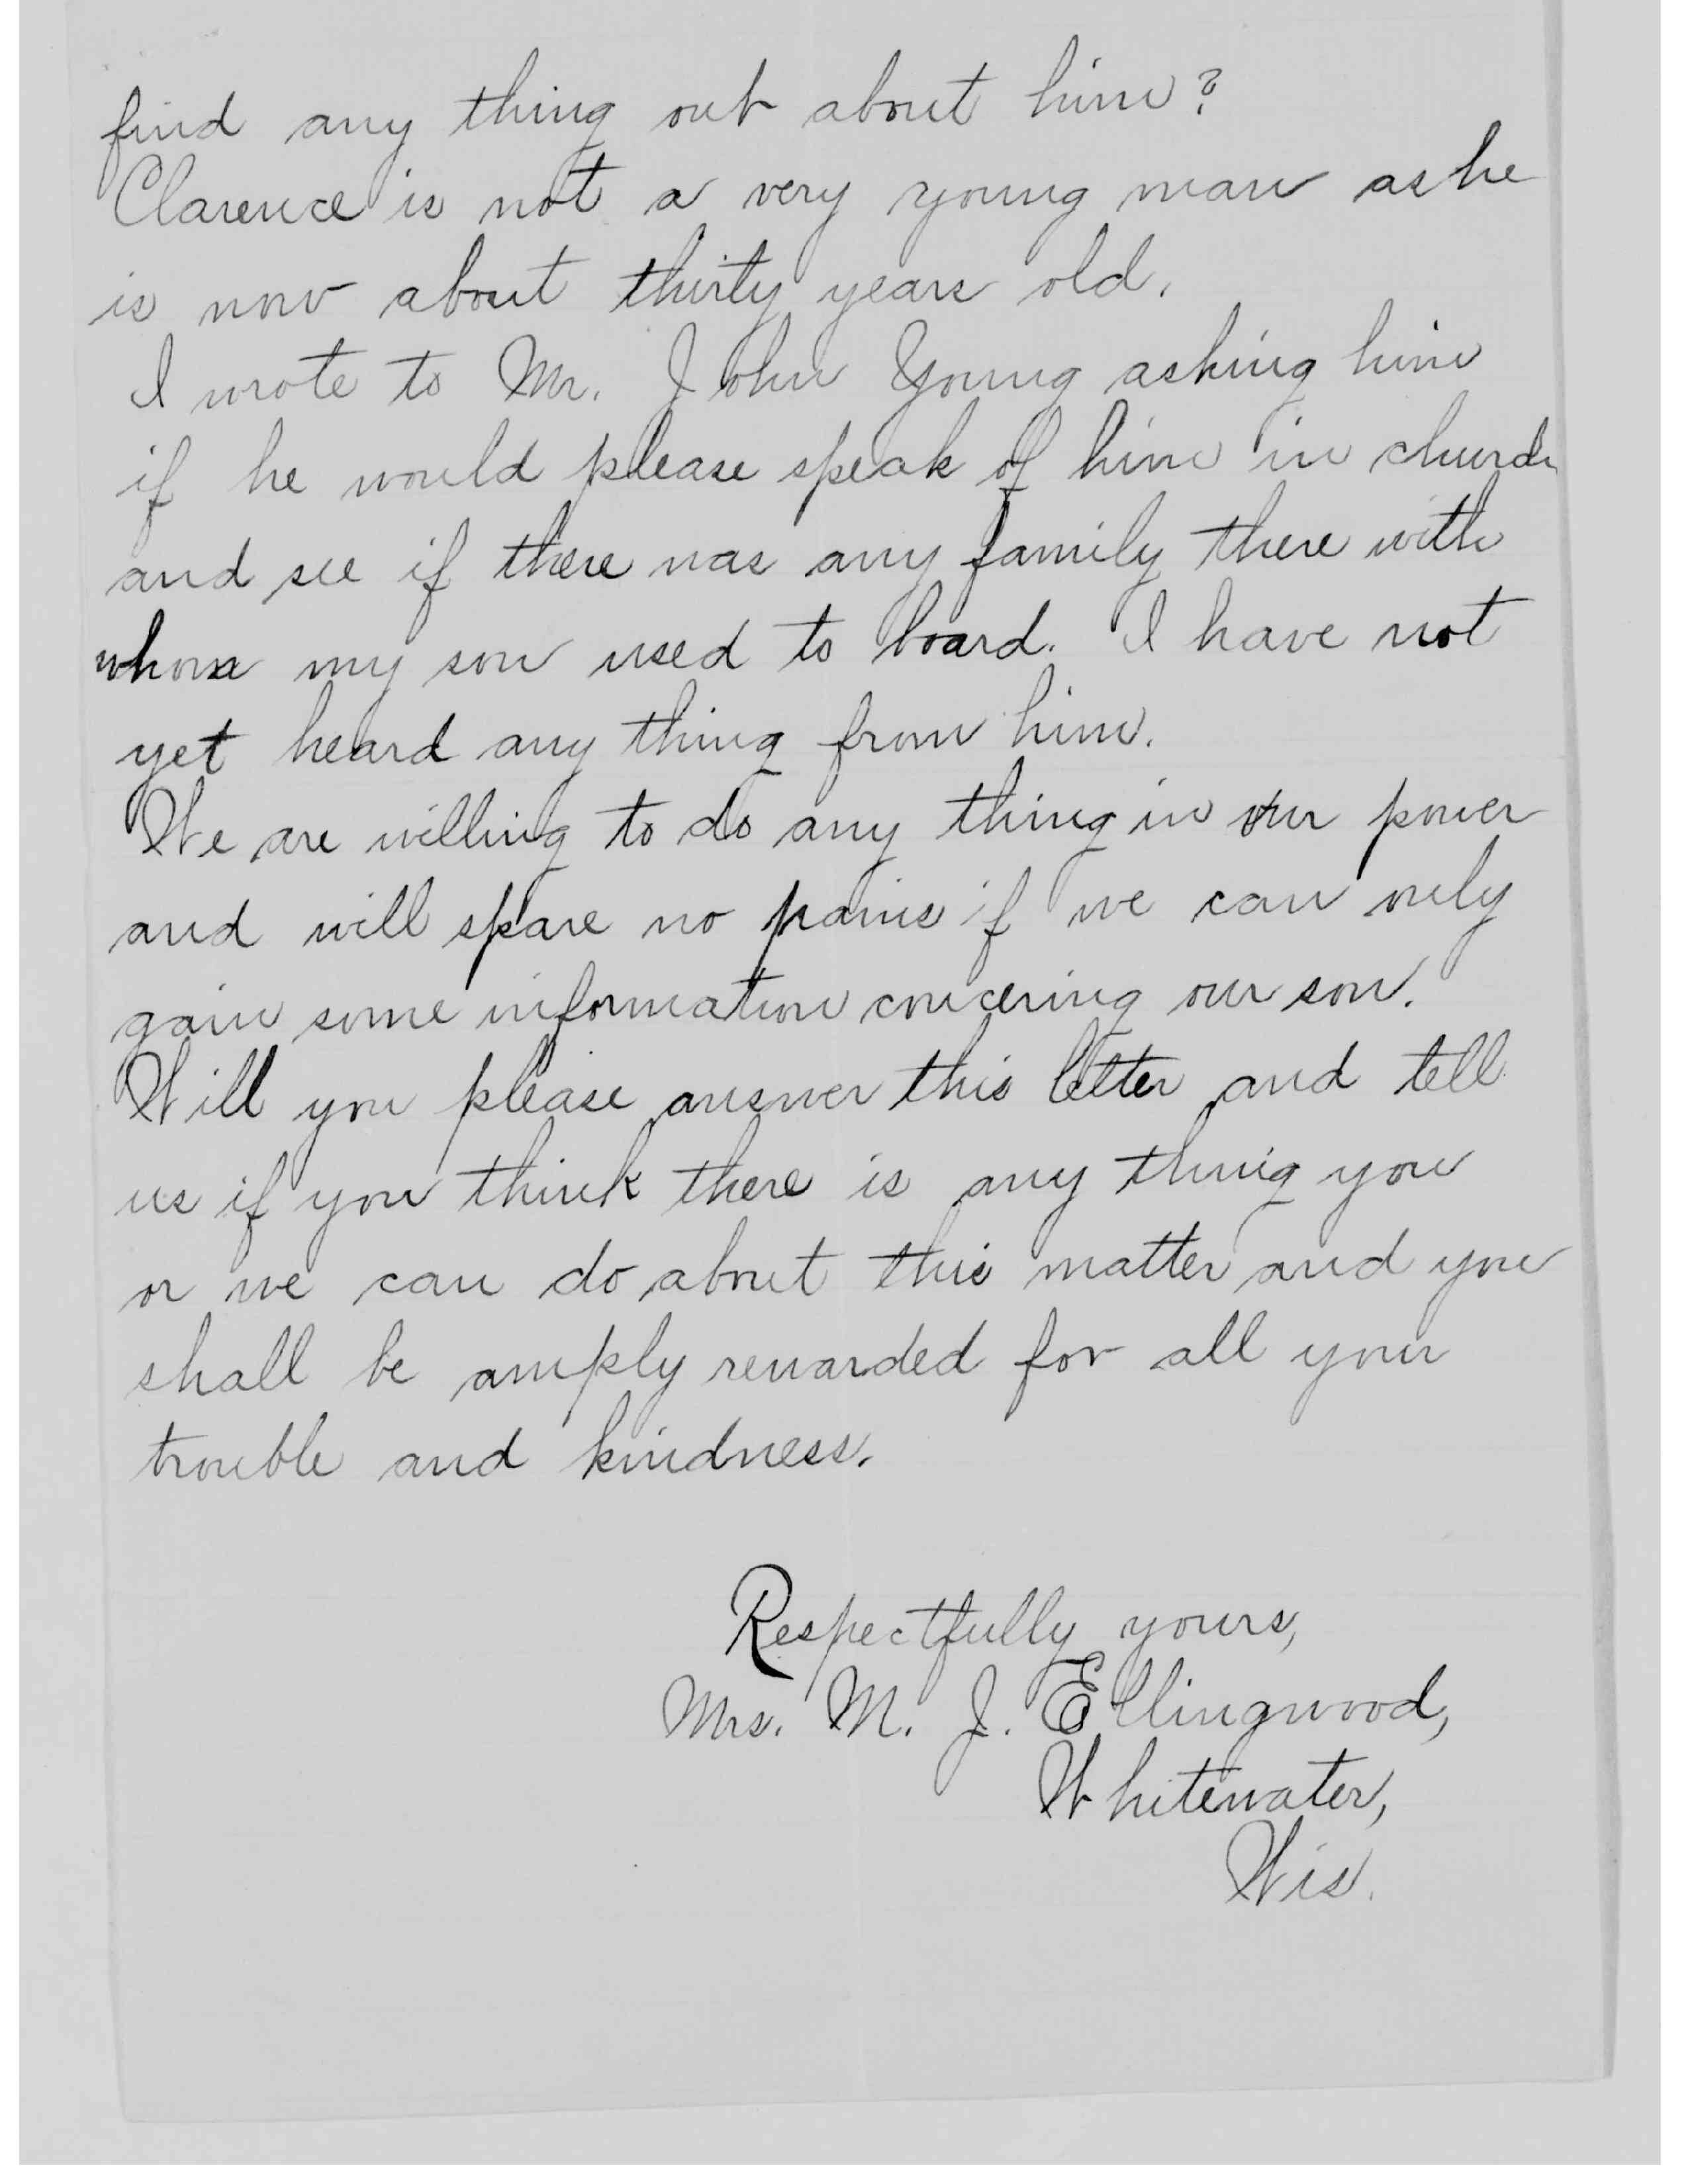 find any thing out about him?
Clarence is not a very young man as he
is now about thirty years old.
I wrote to Mr. John Young asking him
if he would please speak of him in church
and see if there was any family there with
whom my son used to board. I have not
yet heard any thing from him.
We are willing to do any thing in our power
and will spare no pains if we can only
gain some information concering our son.
Will you please answer this letter and tell
us if you think there is any thing you
or we can do about this matter and you
shall be amply rewarded for all your
trouble and kindness.
Respectfully yours,
Mrs. M. J. Ellingwood,
Whitewater,
Wis.